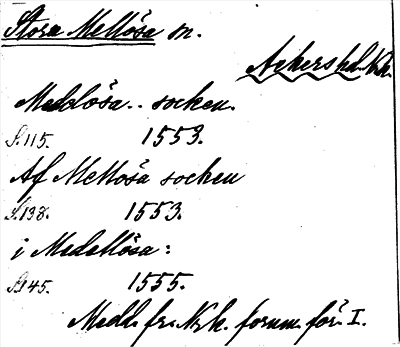 Stora Mellösa sn.
Askers hd. Nke.
Medlösa.. socken.
S. 115. 1553.
Af Mellösa socken
S. 138. 1553.
i Medellösa:
S. 145. 1555.
Medd. fr. Nrk. fornm. för. I.